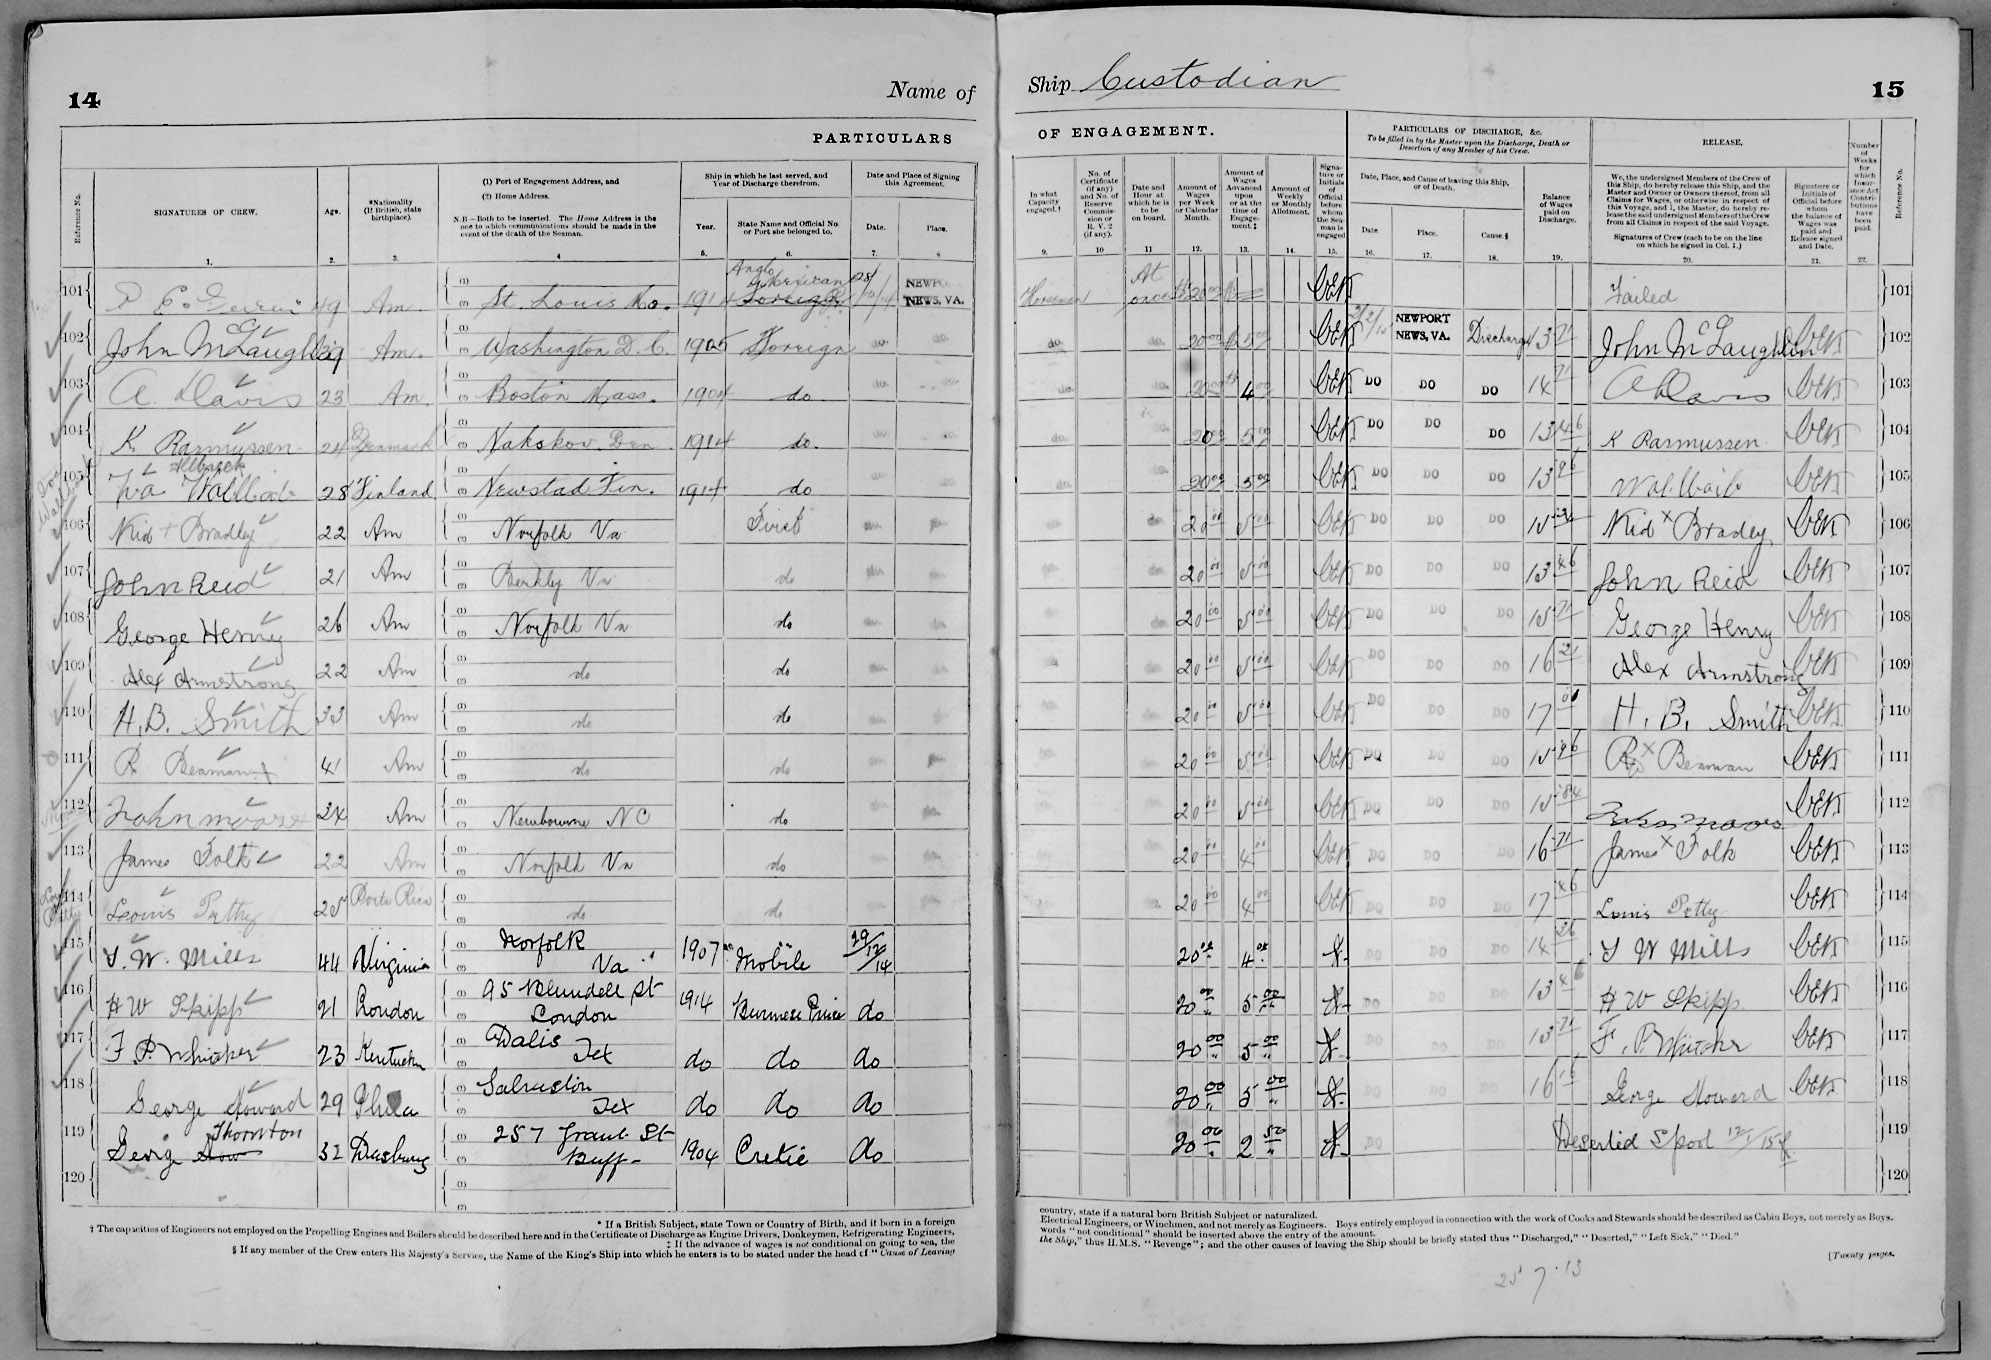 14
Name of
PARTICULARS
Reference No.
SIGNATURES OF CREW.
Age.
*Nationality (If British, state birthplace).
(1) Port of Engagement Address, and
(2) Home Address.
N.B—Both to be inserted. The Home Address is the one to which communications should be made in the event of the death of the Seaman.
Ship in which he last served, and Year of Discharge therefrom.
Year.
State Name and Official No. or Port she belonged to.
Date and Place of Signing this Agreement.
Date.
Place.
1. 2. 3. 4 5. 6. 7. 8
101 49 Am. St. Louis Mo. 1914 Anglo Mexican NEWPO. NEWS, VA.
102 John McLaughlin 39 Am. Washington D.C. 1905 Foreign do. do.
103 A. Davis 23 Am. Boston Mass. 1904 do. do. do.
104 K Rasmussen 24 Denmark Nakskov Den 1914 do. do. do.
105 28 Finland Newstad Fin. 1914 do
106 Kid + Bradley 22 Am Norfolk Va First do do
107 John Reid 21 Am Berkly Va do do do
108 George Henry 26 Am Norfolk Va do do do
109 Alex Armstrong 22 Am do do do do
110 H.B. Smith 33 Am do do do do
111 R Beaman + 41 Am do do do do
112 John Moore 24 Am Newbourne NC do do do
113 James Folk 22 Am Norfolk Va do do do
114 Louis Petty 25 Porto Rico do do do do
115 T. W. Mills 44 Virginia Norfolk Va 1907 Mobile 29/12/14
116 H W Skipp 21 London 95 Blundell St London 1914 Burmese Prince do
117 F. P. Whicker 23 Kentucky Dalis Tex do do do
118 George Howard 29 Phila Galveston Tex do do do
119 George Thornton 32 257 Grant St Buff- 1904 Cretic do
120
* If a British Subject, state Town or Country of Birth, and if born in a foreign
† The capacities of Engineers not employed on the Propelling Engines and Boilers should be described here and in the Certificate of Discharge as Engine Drivers, Donkeymen, Refrigerating Engineers,
‡ If the advance of wages is not conditional on going to sea, the
§ If any member of the Crew enters His Majesty's Service, the Name of the King's Ship into which he enters is to be stated under the head of "Cause of Leaving
Ship Custodian
15
OF ENGAGEMENT.
PARTICULARS OF DISCHARGE, &c.
To be filled in by the Master upon the Discharge, Death or Desertion of any Member of his Crew.
RELEASE.
Number of Weeks for which Insurance Act Contributions have been paid.
Reference No.
In what Capacity engaged.†
No. of Certificate (if any) and No. of Reserve Commission or R. V. 2 (if any).
Date and Hour at which he is to be on board.
Amount of Wages per Week or Calendar Month.
Amount of Wages Advanced upon or at the time of Engagement.‡
Amount of Weekly or Monthly Allotment.
Signature or Initials of Official before whom the Seaman is engaged
Date, Place, and Cause of leaving this Ship, or of Death.
Date
Place.
Cause.§
Balance of Wages paid on Discharge.
We, the undersigned Members of the Crew of this Ship, do hereby release this Ship, and the Master and Owner or Owners thereof, from all Claims for Wages, or otherwise in respect of this Voyage, and I, the Master, do hereby release the said undersigned Members of the Crew from all Claims in respect of the said Voyage.
Signatures of Crew (each to be on the line on which he signed in Col. 1.)
Signature or Initials of Official before whom the balance of Wages was paid and Release signed and Date.
9. 10 11 12. 13. 14. 15. 16. 17. 18. 19. 20. 21. 22.
Horseman At once 20 00 Failed 101
do. do. 20 00 5 00 NEWPORT NEWS, VA. Discharge 13 71 John McLaughlin 102
do. do. 20 00 4 00 DO DO DO 14 71 A Davis 103
do. 20 00 5 00 DO DO DO 13 46 K Rasmussen 104
do. do. 20 00 5 00 DO DO DO 13 96 105
do 20 00 5 00 DO DO DO Kid x Bradley 106
do 20 00 5 00 DO DO DO 13 46 John Reid 107
do 20 00 5 00 DO DO DO 15 71 George Henry 108
do 20 00 5 00 DO DO DO 16 21 Alex Armstrong 109
do 20 00 5 00 DO DO DO 17 00 H. B. Smith 110
do 20 00 5 00 DO DO DO 15 96 R x Beaman 111
do 20 00 5 00 DO DO DO 15 84 112
do 20 00 4 00 DO DO DO 16 71 James x Folk 113
do 20 00 4 00 DO DO DO 17 46 Louis Petty 114
20 4 DO DO DO 14 26 T W Mills 115
20 00 5 00 DO DO DO 13 46 H W Skipp 116
20 00 5 00 DO DO DO 13 71 117
20 00 5 00 DO DO DO 16 16 George Howard 118
20 00 2 50 DO Deserted Lpool 12/1/15 119
120
country, state if a natural born British Subject or naturalized.
Electrical Engineers, or Winchmen, and not merely as Engineers. Boys entirely employed in connection with the work of Cooks and Stewards should be described as Cabin Boys, not merely as Boys.
words "not conditional" should be inserted above the entry of the amount.
the Ship," thus H.M.S. "Revenge"; and the other causes of leaving the Ship should be briefly stated thus "Discharged," "Deserted," "Left Sick," "Died."
[Twenty pages.
25 7 13